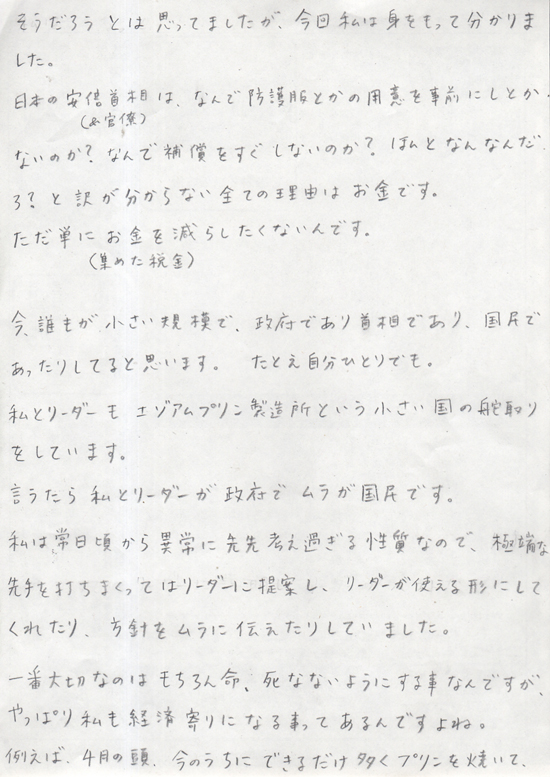 そうだろうとは思ってましたが、今回私は身をもって分かりま
した。
日本の安倍首相は、なんで防護服とかの用意を事前にしとか
(&官僚)
ないのか?なんで補償をすぐしないのか?ほんとなんなんだ
ろ?と訳が分からない全ての理由はお金です。
ただ単にお金を減らしたくないんです。
(集めた税金)
今、誰もが小さい規模で、政府であり首相であり、国民で
あったりしてると思います。 たとえ自分ひとりでも。
私とリーダーもエゾアムプリン製造所という小さい国の舵取り
をしています。
言うたら私とリーダーが政府でムラが国民です。
私は常日頃から異常に先先考え過ぎる性質なので、極端な
先手を打ちまくってはリーダーに提案し、リーダーが使える形にして
くれたり、方針をムラに伝えたりしていました。
一番大切なのはもちろん命、死なないようにする事なんですが、
やっぱり私も経済寄りになる事ってあるんですよね。
例えば、4月の頭、今のうちにできるだけ多くプリンを焼いて、